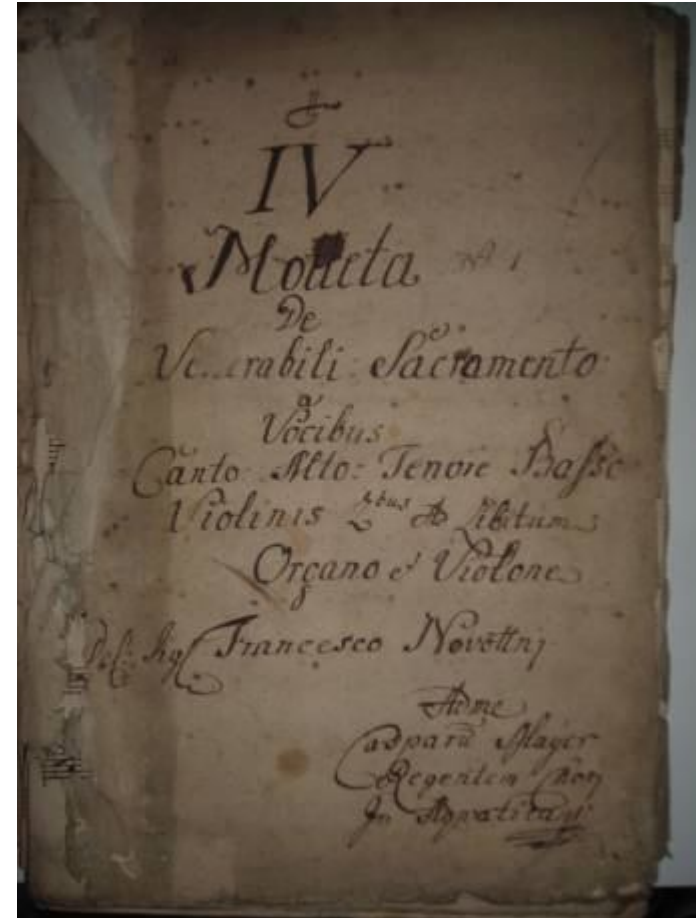 IV
Motteta No 1
De
Ve..erabili: Sacramento
a
Vocibus
Canto: Alto: Tenore Basso
Violinis 2bus Ad Libitum
Organo e Violone
Del: Sig Francesco Novottnj
Ad me
Casparū Mayer
Regentem Chori
In